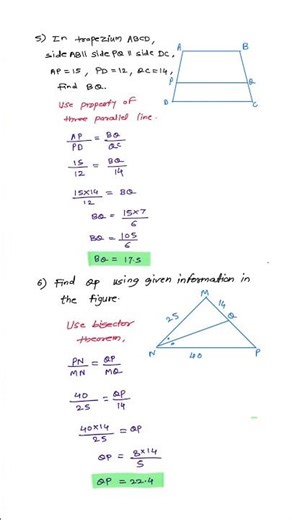 5) In trapezium ABCD,
side AB || side PQ || side DC,
AP = 15, PD = 12, QC = 14,
find BQ.
A B
P Q
D C
Use property of
three parallel line.
AP/PD = BQ/QC
15/12 = BQ/14
15×14/12 = BQ
BQ = 15×7/6
BQ = 105/6
BQ = 17.5
6) Find QP using given information in
the figure.
M
25 14
Q
N 40 P
Use bisector
theorem,
PN/MN = QP/MQ
40/25 = QP/14
40×14/25 = QP
QP = 8×14/5
QP = 22.4